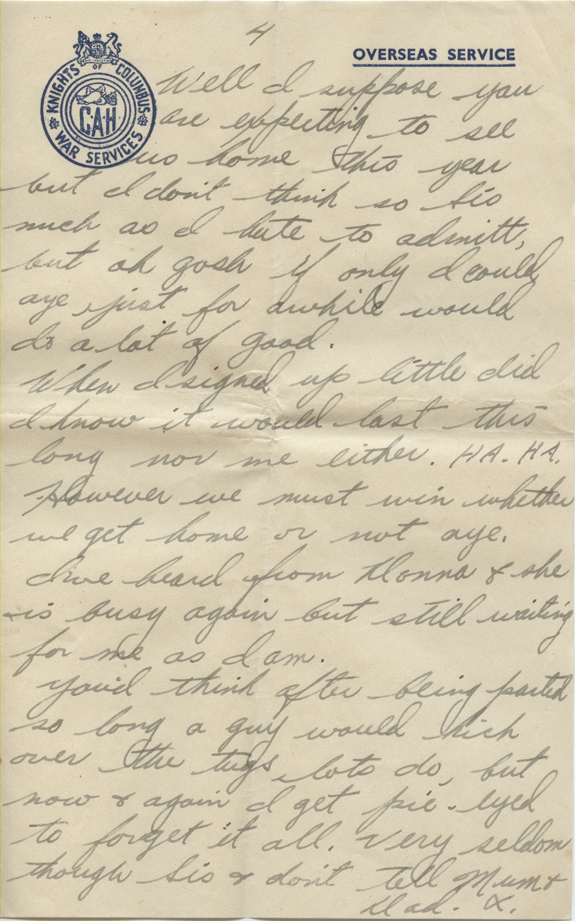 4
OVERSEAS SERVICE
KNIGHTS OF COLUMBUS
CAH
WAR SERVICES
Well I suppose you
are expecting to see
us home this year
but I don't think so Sis
much as I hate to admitt,
but oh gosh if only I could
aye, just for awhile would
do a lot of good.
When I signed up little did
I know it would last this
long nor me either. HA. HA.
However we must win whether
we get home or not aye.
I've heard from Donna & she
is busy again but still waiting
for me as I am.
You'd think after being parted
so long a guy would kick
over the tugs, lots do, but
now & again I get pie-eyed
to forget it all. Very seldom
though Sis & don't tell Mum &
Dad. X.